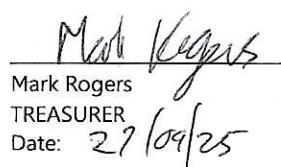 Mark Rogers
Mark Rogers
TREASURER
Date: 27/09/25